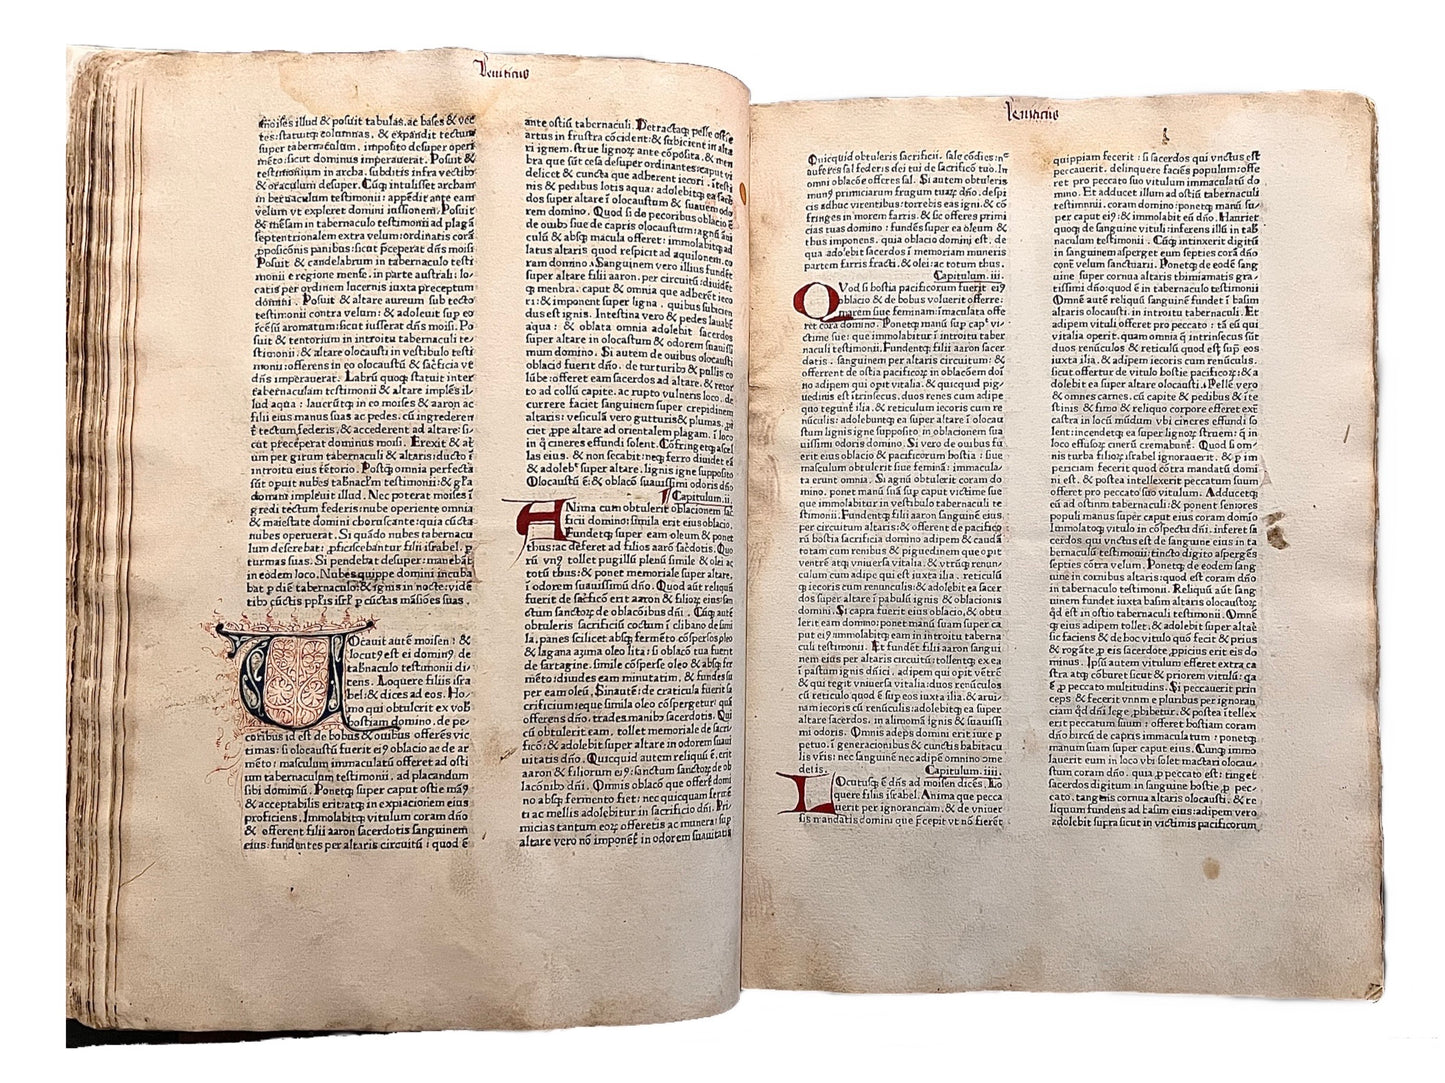 Leuiticus
moises illud & posuit tabulas. ac bases & vec
tes: statuitq; columnas. & expandit tectum
super tabernaculum. imposito desuper operi
mēto: sicut dominus imperauerat. Posuit &
testimonium in archa. subditis infra vectibꝰ
& oraculum desuper. Cūq; intulisset archam
in tabernaculum testimonii: appēdit ante eam
velum vt expleret domini iussionem. Posuit
& mēsam in tabernaculo testimonii ad plagā
septentrionalem extra velum: ordinatis corā
ꝓposicōnis panibus: sicut p̄ceperat dn̄s moisi
Posuit & candelabrum in tabernaculo testi
monii e regione mense. in parte australi: lo-
catis per ordinem lucernis iuxta preceptum
domini. Posuit & altare aureum sub tecto
testimonii contra velum: & adoleuit sup eo
īcēsū aromatum: sicut iusserat dn̄s moisi. Po
suit & tentorium in introitu tabernaculi te-
stimonii: & altare olocausti in vestibulo testi
monii: offerens in eo olocaustū & sac̄ficia vt
dn̄s imperauerat. Labrū quoq; statuit inter
tabernaculum testimonii & altare implēs il-
lud aqua: laueruntq; in eo moises & aaron ac
filii eius manus suas ac pedes. cū ingrederent̄
ī tectum federis. & accederent ad altare: si-
cut preceperat dominus moisi. Erexit & at
rium per girum tabernaculi & altaris: ducto ī
introitu eius tētorio. Postq̄ omnia perfecta
sūt opuit nubes tab̄nac̄lm testimonii: & gl̄a
domini impleuit illud. Nec poterat moises ī
gredi tectum federis: nube operiente omnia
& maiestate domini choruscante: quia cūcta
nubes operuerat. Si quādo nubes tabernacu
lum deserebat: ꝓficiscebantur filii israhel. ꝑ
turmas suas. Si pendebat desuper: manebāt
in eodem loco. Nubes quippe domini incuba
bat ꝑ diē tabernaculo: & ignis in nocte: vidē
tibꝰ cūctis ppl̄is isrl̄ ꝑ cūctas māsiōes suas.
VOcauit autē moisen: &
locutꝰ est ei dominꝰ de
tab̄naculo testimonii di-
cens. Loquere filiis isra
hel: & dices ad eos. Ho-
mo qui obtulerit ex vob̄
hostiam domino. de pe-
coribus id est de bobus & ouibus offerēs vic
timas: si olocaustū fuerit eiꝰ oblacio ac de ar
mēto: masculum immaculatū offeret ad osti
um tabernaculum testimonii. ad placandum
sibi dominū. Ponetq; super caput ostie manꝰ
& acceptabilis erit: atq; in expiacionem eius
proficiens. Immolabitq; vitulum coram dn̄o
& offerent filii aaron sacerdotis sanguinem
eius: fundentes per altaris circuitū: quod ē
ante ostiū tabernaculi. Detractaq; pelle ostie
artus in frustra cōcident: & subicient in alta
ri ignem. strue lignoꝝ ante cōposita. & mem
bra que sūt cesa desuper ordinantes: caput vi
delicet & cuncta que adherent iecori. intesti
nis & pedibus lotis aqua: adolebitq; ea sac̄do
dos super altare ī olocaustum & suauem odo
rem domino. Quod si de pecoribus oblacio ē
de ouibꝰ siue de capris olocaustum: agnū anni
culū & absq; macula offeret: immolabitq; ad
latus altaris quod respicit ad aquilonem. co
ram domino. Sanguinem vero illius fundēt
super altare filii aaron. per circuitū: diuidēt
q; menbra. caput & omnia que adherēt ieco
ri: & imponent super ligna. quibus subicien
dus est ignis. Intestina vero & pedes lauabt̄
aqua: & oblata omnia adolebit sacerdos
super altare in olocaustum & odorem suauissi
mum domino. Si autem de ouibus olocausti
oblacio fuerit dn̄o. de turturibꝰ & pullis co
lūbe: offeret eam sacerdos ad altare. & retor
to ad collū capite. ac rupto vulneris loco. de
currere faciet sanguinem super crepidinem
altaris: vesiculā vero gutturis & plumas. ꝓi
ciet ꝓpe altare ad orientalem plagam. ī loco
in q̄ cineres effundi solent. Cōfringetq; ascel
las eius. & non secabit: neq; ferro diuidet eā
& adolebꝭ super altare. lignis igne supposito
Olocaustū ē: & oblacō suauissimi odoris dn̄o
Capitulum. ii.
ANima cum obtulerit oblacionem sac̄
ficii domino: simila erit eius oblacio.
Fundetq; super eam oleum & ponet
thus: ac deferet ad filios aarō sac̄dotis. Quo
rū vnꝰ tollet pugillū plenū simile & olei ac
totū thus: & ponet memoriale super altare.
ī odorem suauissimū dn̄o. Quod aūt reliquū
fuerit de sac̄ficō erit aaron & filioꝝ eius: san
ctum sanctoꝝ de oblacōibus dn̄i. Cūq; autē
obtuleris sacrificiū coctum ī clibano de simi
la. panes scilicet absq; fermēto cōspersos oleo
& lagana azima oleo lita: si oblacō tua fuerit
de sartagine. simile cōsperse oleo & absq; fer
mēto: diuides eam minutatim. & fundes su
per eam oleū. Sin autē: de craticula fuerit sa
crificium: eque simila oleo cōspergetur: quā
offerens dn̄o. trades manibꝰ sacerdotis. Qui
cū obtulerit eam. tollet memoriale de sacri
ficō: & adolebit super altare in odorem suaui
uitatis dn̄o. Quicquid autem reliquū ē. erit
aaron & filiorum eiꝰ: sanctum sanctoꝝ de ob
lacōnibꝰ dn̄i. Omnis oblacō que offert̄ domi
no absq; fermento fiet: nec quicquam fermē
ti ac mellis adolebitur in sacrificio dn̄i. Pri
micias tantum eoꝝ offeretis ac munera: sup
altare vero nō imponēt̄ in odorem suauitatis
Leuiticus
Quicquid obtuleris sacrificii. sale cōdies: nec
auferes sal federis dei tui de sacrificō tuo. In
omni oblacōe offeres sal. Si autem obtuleris
munꝰ primiciarum frugum tuaꝝ dn̄o. de spi
cis adhuc virentibus: torrebis eas igni. & cō
fringes in morem farris. & sic offeres primi
cias tuas domino: fundēs super ea oleum &
thus imponens. quia oblacio domini est. de
qua adolebit sacerdos ī memoriam muneris
partem farris fracti. & olei: ac totum thus.
Capitulum. iii.
QVod si hostia pacificorum fuerit eiꝰ
oblacio & de bobus voluerit offerre:
marem siue feminam: immaculata offe
ret corā domino. Ponetq; manū sup capꝭ vi-
ctime sue: que immolabitur ī introitu taber
naculi testimonii. Fundentq; filii aaron sacer
dotis. sanguinem per altaris circuitum: &
offerrent de ostia pacificoꝝ in oblacōem do-
mino adipem qui opit vitalia. & quicquid pig-
uedinis est ītrinsecus. duos renes cum adipe
quo tegunt̄ ilia. & reticulum iecoris cum re
nūculis: adolebuntq; ea super altare ī olocau
stum lignis igne supposito in oblacionem sua
uissimi odoris domino. Si vero de ouibus fu
erit eius oblacio & pacificorum hostia: siue
masculum obtulerit siue feminā: immacula-
ta erunt omnia. Si agnū obtulerit coram do
mino. ponet manū suā sup caput victime sue
que immolabitur in vestibulo tabernaculi te
stimonii. Fundentq; filii aaron sanguinē eius.
per circuitum altaris: & offerent de pacifico
rū hostia sacrificia domino adipem & caudā
totam cum renibus & piguedinem que opit
ventrē atq; vniuersa vitalia. & vtrūq; renun-
culum cum adipe qui est iuxta ilia. reticulū
q; iecoris cum renūculis: & adolebit ea sacer
dos super altare ī pabulū ignis & oblacionis
domini. Si capra fuerit eius oblacio. & obtu
lerit eam domino: ponet manū suam super ca
put eiꝰ: immolabitq; eam in introitu taberna
culi testimonii. Et fundēt filii aaron sangui
nem eius per altaris circuitū: tollentq; ex ea
ī pastum ignis dn̄ici. adipem qui opit vētrē
& qui tegit vniuersa vitalia: duos renūculos
cū reticulo quod ē sup eos iuxta ilia. & arui-
nam iecoris cū renūculis: adolebitq; ea super
altare sacerdos. in alimomā ignis & suauissi
mi odoris. Omnis adeps domini erit iure ꝑ
petuo. ī generacionibus & cunctis habitacu
lis vr̄is: nec sanguinē nec adipē omnino ome
detis.
Capitulum. iiii.
LOcutusq; ē dn̄s ad moisen dicēs. Lo
quere filiis israhel. Anima que pecca
uerit per ignoranciam. & de vniuer
sis mandatis domini que p̄cepit vt nō fierēt
quippiam fecerit: si sacerdos qui vnctus est
peccauerit. delinquere faciēs populum: offe
ret pro peccato suo vitulum immaculatū do
mino. Et adducet illum ad ostiū tabernaculi
testimonii. coram domino: ponetq; manū su
per caput eiꝰ & immolabit eū dn̄o. Hauriet
quoq; de sanguine vituli: inferens illū in tab̄
naculum testimonii. Cūq; intinxerit digitū
in sanguinem asperget eum septies corā dn̄o
conꝭ velum sanctuarii. Ponetq; de eodē sang
uine super cornua altaris thimiamatis gra-
tissimi dn̄o: quod ē in tabernaculo testimonii
Omnē autē reliquū sanguinē fundet ī basim
altaris olocausti. in introitu tabernaculi. Et
adipem vituli offeret pro peccato: tā eū qui
vitalia operit. quam omnia q̄ intrinsecus sūt
duos renūculos & reticulū quod est sup eos
iuxta ilia. & adipem iecoris cum renūculis.
sicut offertur de vitulo hostie pacificoꝝ: & a
dolebit ea super altare olocausti. Pellē vero
& omnes carnes. cū capite & pedibus & ite
stinis & fimo & reliquo corpore offeret extᷓ
castra in locū mūdum vbi cineres effundi so
lent: incendetq; ea super lignoꝝ struem: q̄ in
loco effusoꝝ cinerū cremabunt̄. Quod si om-
nis turba filioꝝ israhel ignorauerit. & ꝑ im
periciam fecerit quod cōtra mandatū domi
ni est. & postea intellexerit peccatum suum
offeret pro peccato suo vitulum. Adducetq;
eū ad ostiū tabernaculi: & ponent seniores
populi manus super caput eius coram domīo
Immolatoq; vitulo in cōspectu dn̄i. inferet sa
cerdos qui vnctus est de sanguine eius in ta
bernaculū testimonii: tincto digito aspergēs
septies cōtra velum. Ponetq; de eodem sang
uine in cornibus altaris: quod est coram dn̄o
in tabernaculo testimonii. Reliquū aūt sang
uinem fundet iuxta basim altaris olocaustoꝝ
qd̄ est in ostio tabernaculi testimonii. Omnē
q; eius adipem tollet. & adolebit super altaē
sic faciens & de hoc vitulo quō fecit & prius
& rogāte ꝓ eis sacerdote. ꝓpicius erit eis do
minus. Ipsū autem vitulum efferet extra ca
stra atq; cōburet sicut & priorem vitulū: qa
ē ꝓ peccato multitudinis. Si peccauerit prin
ceps & fecerit vnum e pluribus per ignoran
ciam qd̄ dn̄i lege ꝓhibetur. & postea ītellex
erit peccatum suum: offeret hostiam coram
dn̄o hircū de capris immaculatum: ponetq;
manum suam super caput eius. Cumq; immo
lauerit eum in loco vbi solet mactari olocau-
stum coram dn̄o. quia ꝓ peccato est: tinget
sacerdos digitum in sanguine hostie ꝓ pec-
cato. tangens cornua altaris olocausti. & re
liquum fundens ad basim eius: adipem vero
adolebit supra sicut in victimis pacificorum